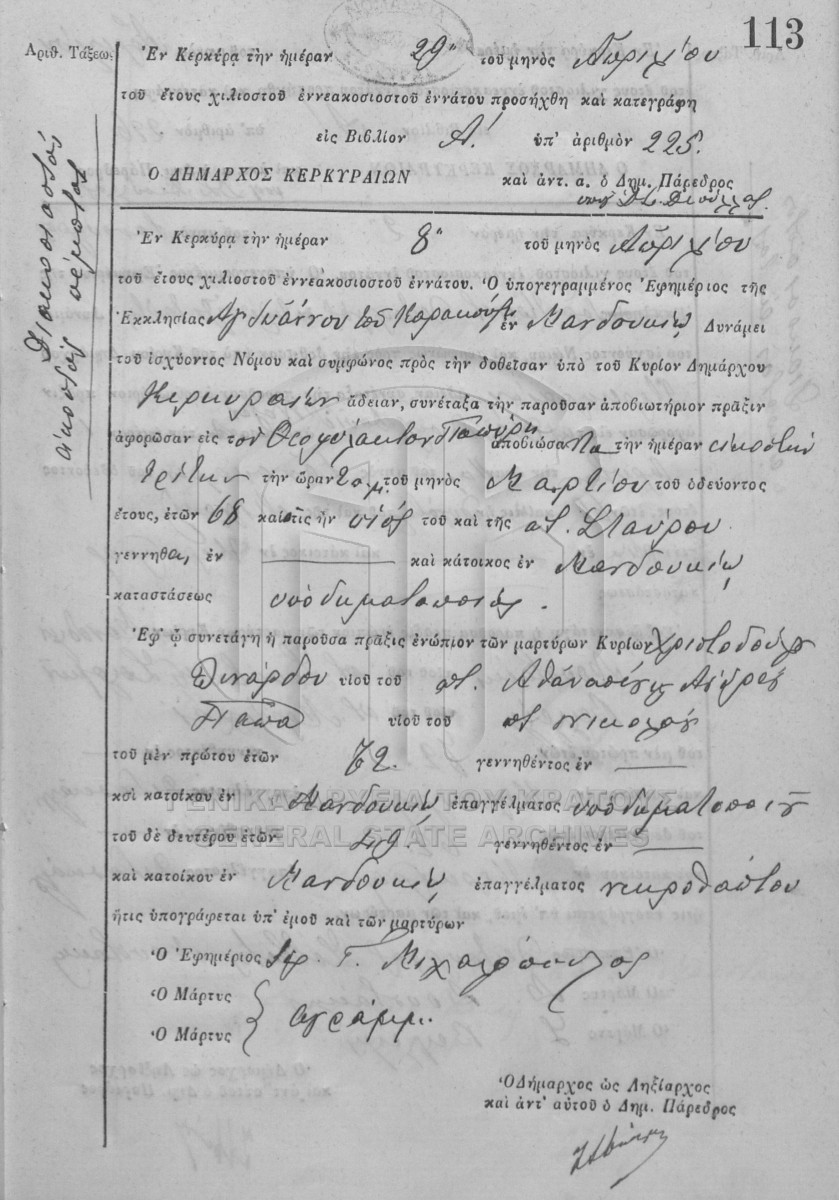 113
Ἀριθ. Τάξεως
Διακοσιοστός
εἰκοστός πέμπτος
Ἐν Κερκύρᾳ τὴν ἡμέραν 29ην τοῦ μηνὸς Ἀπριλίου
τοῦ ἔτους χιλιοστοῦ ἐννεακοσιοστοῦ ἐννάτου προσήχθη καὶ κατεγράφη
εἰς Βιβλίον Α΄. ὑπ' ἀριθμὸν 225.
Ὁ ΔΗΜΑΡΧΟΣ ΚΕΡΚΥΡΑΙΩΝ καὶ ἀντ. α. ὁ Δημ. Πάρεδρος
Ἐν Κερκύρᾳ τὴν ἡμέραν 8ην τοῦ μηνὸς Ἀπριλίου
τοῦ ἔτους χιλιοστοῦ ἐννεακοσιοστοῦ ἐννάτου. Ὁ ὑπογεγραμμένος Ἐφημέριος τῆς
Ἐκκλησίας Ἁγ. Ἰωάννου τοῦ ἐν Μανδουκίῳ Δυνάμει
τοῦ ἰσχύοντος Νόμου καὶ συμφώνος πρὸς τὴν δοθεῖσαν ὑπὸ τοῦ Κυρίου Δημάρχου
Κερκυραίων ἄδειαν, συνέταξα τὴν παροῦσαν ἀποβιωτήριον πρᾶξιν
ἀφορῶσαν εἰς τὸν Θεοφύλακτον ἀποβιώσαντα τὴν ἡμέραν εἰκοστὴν
τρίτην τὴν ὥραν π.μ. τοῦ μηνὸς Μαρτίου τοῦ ὁδεύοντος
ἔτους, ἐτῶν 68 καὶ τις ἦν υἱὸς τοῦ καὶ τῆς ποτ. Σταύρου
γεννηθα, ἐν — καὶ κάτοικος ἐν Μανδουκίῳ
καταστάσεως ὑποδηματοποιός.
Ἐφ' ᾧ συνετάγη ἡ παροῦσα πρᾶξις ἐνώπιον τῶν μαρτύρων Κυρίων Χριστοδούλου
υἱοῦ τοῦ ποτ. Ἀθανασίου καὶ Ἀνδρέου
Παππᾶ υἱοῦ τοῦ ποτ. Νικολάου
τοῦ μὲν πρώτου ἐτῶν 72 γεννηθέντος ἐν —
κσὶ κατοίκου ἐν Μανδουκίῳ ἐπαγγέλματος ὑποδηματοποιοῦ
ΓΕΝΙΚΑ ΑΡΧΕΙΑ ΤΟΥ ΚΡΑΤΟΥΣ
GENERAL STATE ARCHIVES
τοῦ δὲ δευτέρου ἐτῶν 49. γεννηθέντος ἐν —
καὶ κατοίκου ἐν Μανδουκίῳ ἐπαγγέλματος νεκροθάπτου
ἥτις ὑπογράφεται ὑπ' ἐμοῦ καὶ τῶν μαρτύρων
Ὁ Ἐφημέριος Γ. Μιχαλόπουλος
Ὁ Μάρτυς
Ὁ Μάρτυς ἀγράμμ.
Ὁ Δήμαρχος ὡς Ληξίαρχος
καὶ ἀντ' αὐτοῦ ὁ Δημ. Πάρεδρος